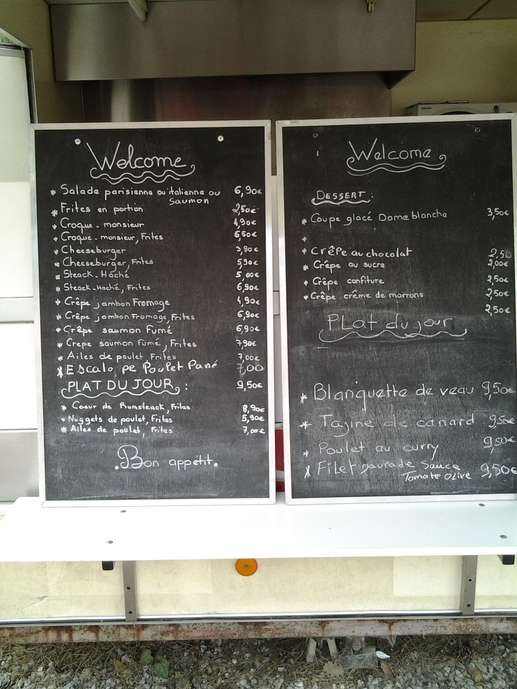 Welcome
* Salade parisienne ou italienne ou Saumon 6,90€
* Frites en portion 2,50€
* Croque-monsieur 4,90€
* Croque-monsieur, Frites 6,50€
* Cheeseburger 3,90€
* Cheeseburger, Frites 5,90€
* Steack-Haché 5,00€
* Steack-haché, Frites 6,90€
* Crêpe jambon Fromage 4,90€
* Crêpe jambon Fromage, Frites 6,90€
* Crêpe saumon Fumé 6,90€
* Crepe saumon Fumé, Frites 7,90€
* Ailes de poulet, Frites 7,00€
* Escalope Poulet Pané 7,00
PLAT DU JOUR : 9,50€
* Coeur de Rumsteack, Frites 8,90€
* Nuggets de poulet, Frites 5,90€
* Ailes de poulet, Frites 7,00€
. Bon appétit.
Welcome
DESSERT.
* Coupe glacé Dame blanche 3,50€
*
* Crêpe au chocolat 2,5
* Crêpe au sucre 2,00€
* Crêpe confiture 2,50€
* Crêpe crème de marrons 2,50€
2,50€
PLat du jour
* Blanquette de veau 9,50€
* Tajine de canard 9,50€
* Poulet au curry 9,50€
* Filet daurade Sauce
Tomate olive 9,50€